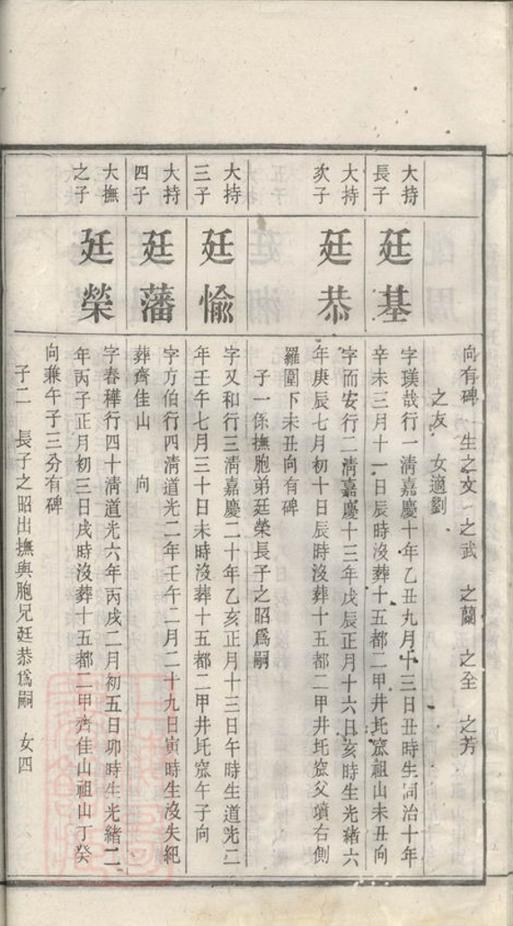 向有碑　生之文　之武　之蘭　之全　之芳
之友　女適劉
大持
長子
廷基
字瑛哉行一清嘉慶十年乙丑九月十三日丑時生同治十年
辛未三月十一日辰時沒葬十五都二甲井圫窊祖山未丑向
大持
次子
廷恭
字而安行二清嘉慶十三年戊辰正月十六日亥時生光緒六
年庚辰七月初十日辰時沒葬十五都二甲井圫窊父墳右側
羅圍下未丑向有碑
子一係撫胞弟廷榮長子之昭爲嗣
大持
三子
廷愉
字又和行三清嘉慶二十年乙亥正月十三日午時生道光二
年壬午七月三十日未時沒葬十五都二甲井圫窊午子向
大持
四子
廷藩
字方伯行四清道光二年壬午二月二十九日寅時生沒失紀
葬齊佳山　向
大撫
之子
廷榮
字春穉行四十清道光六年丙戌二月初五日卯時生光緒二
年丙子正月初三日戌時沒葬十五都二甲齊佳山祖山丁癸
向兼午子三分有碑
子二　長子之昭出撫與胞兄廷恭爲嗣　女四